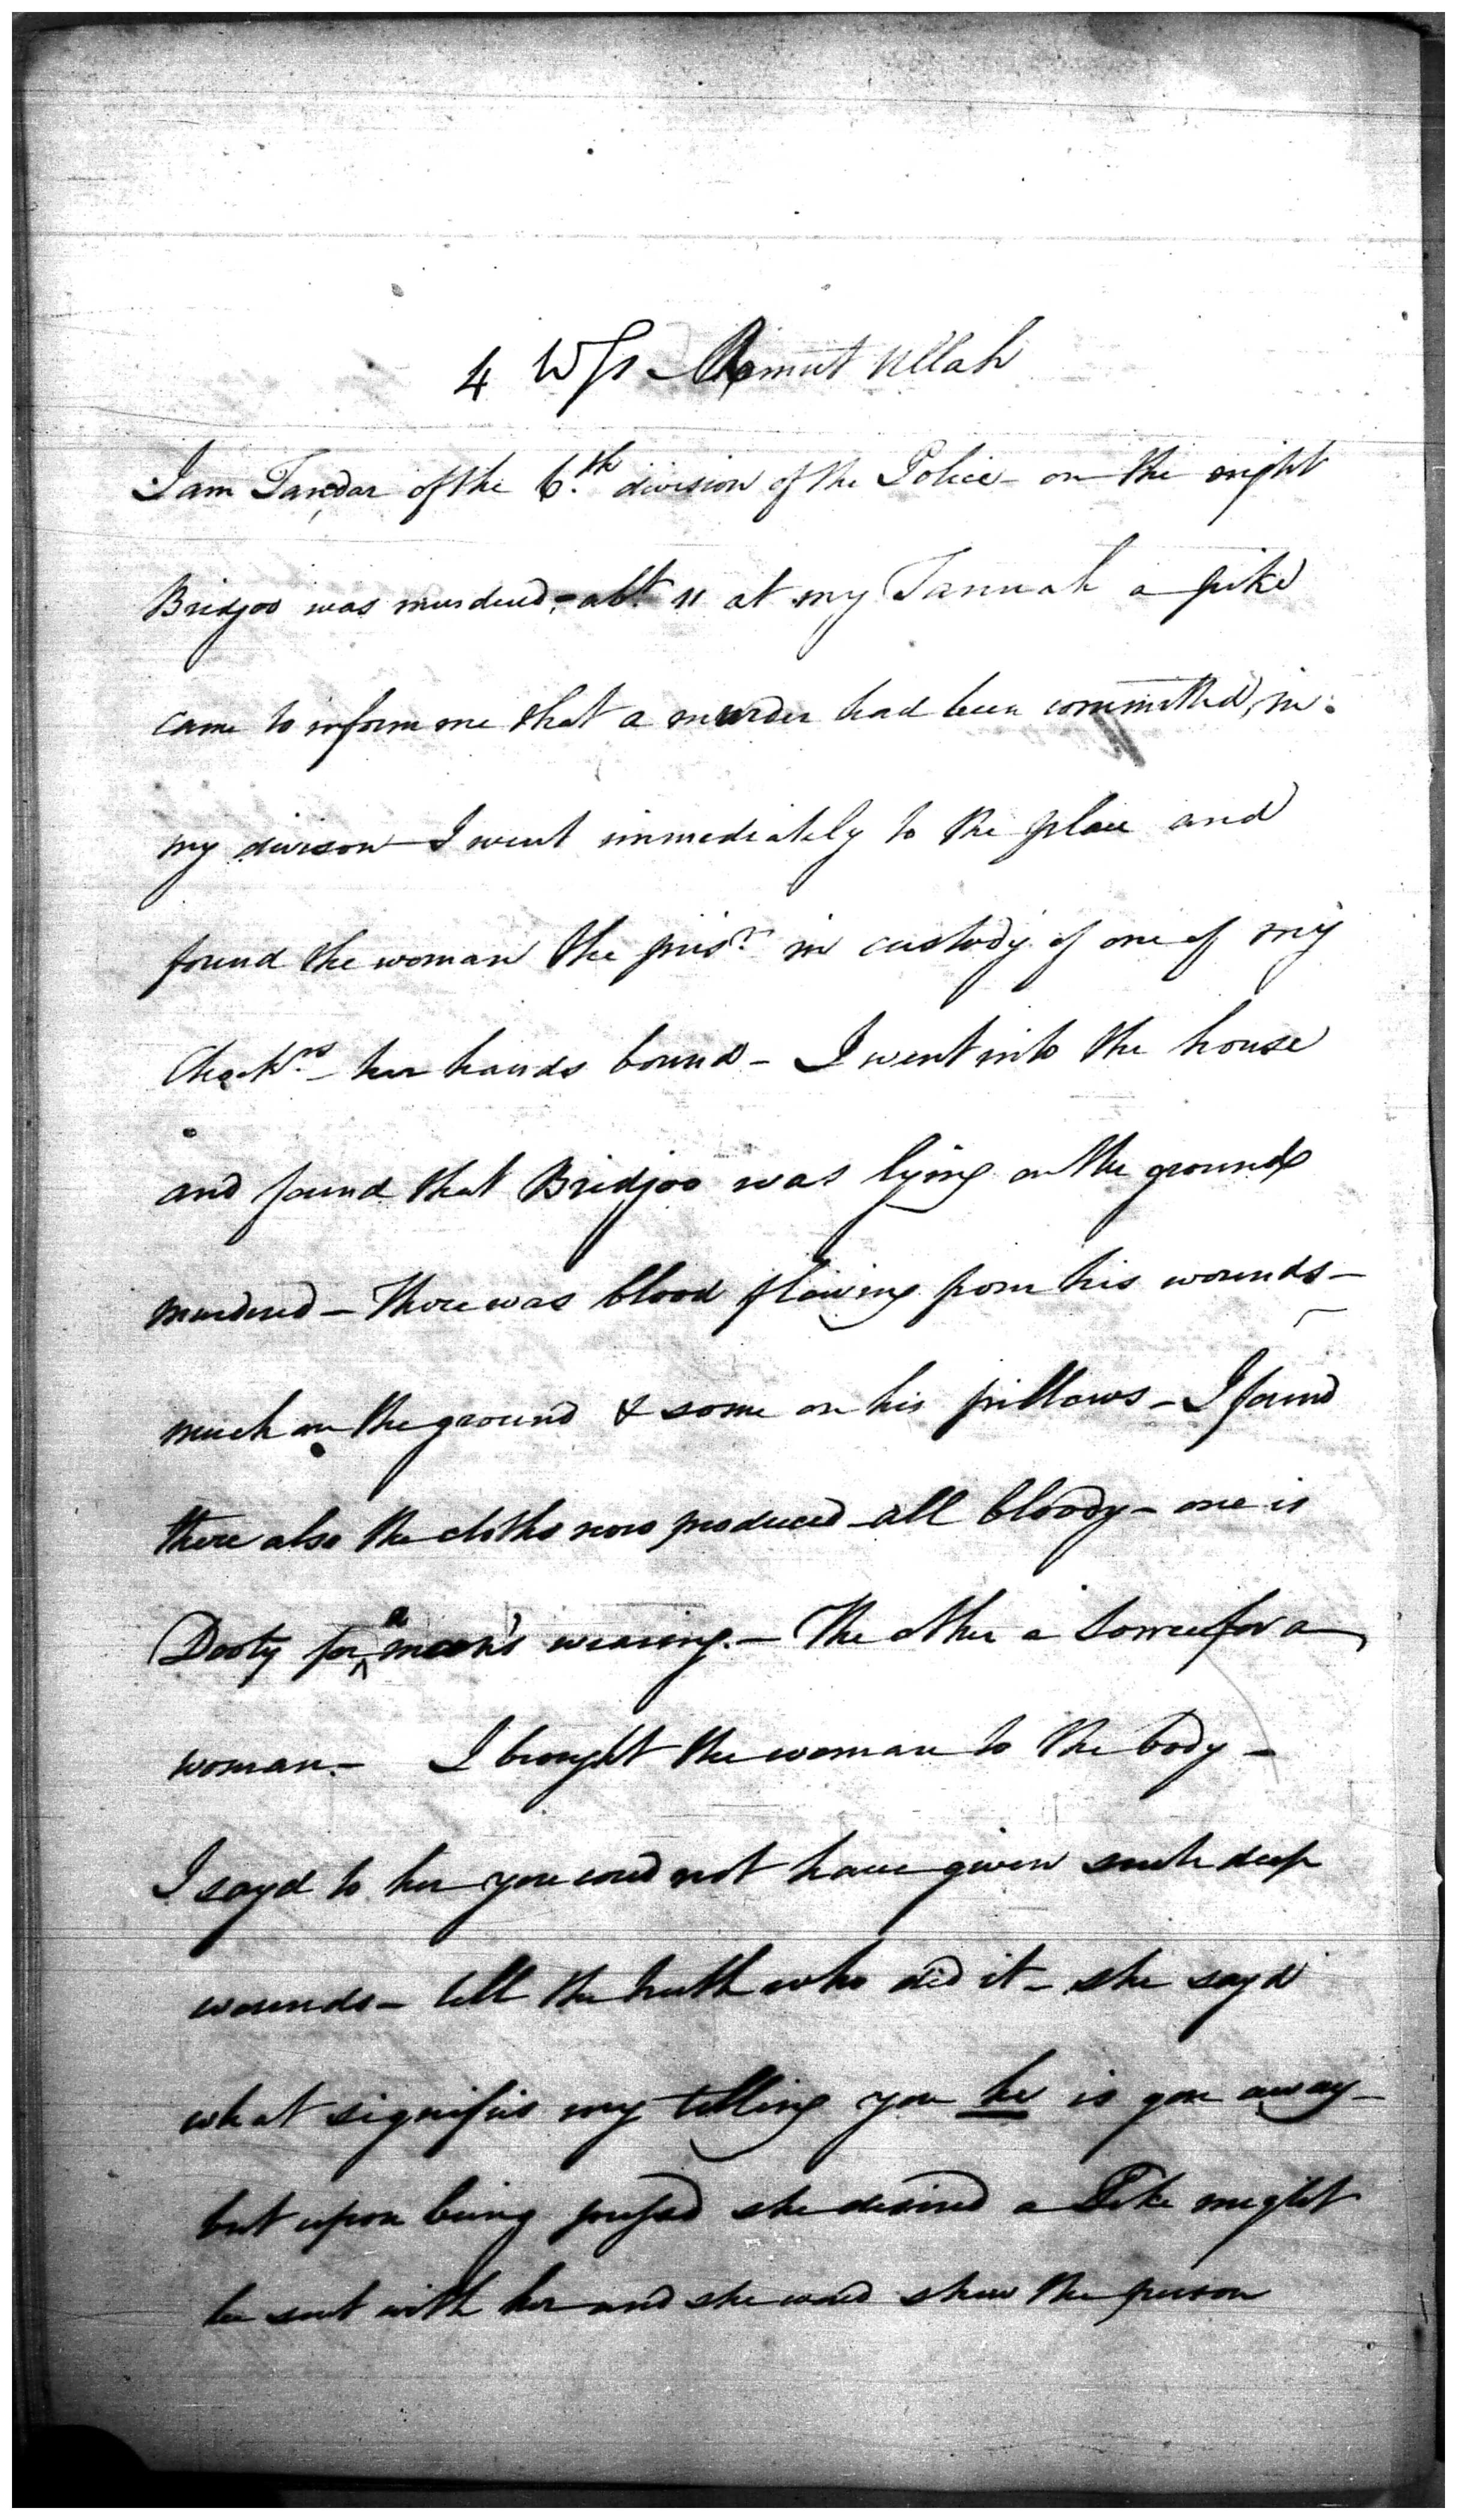 4 Wss Ramut Ullah
I am Tandar of the 6.th division of the Police - on the night
Bridjoo was murdered, - abt. 11 at my Tannah a pike
came to inform me that a murder had been committed, in
my division - I went immediately to the place and
found the woman the prisr. in custody of one of my
her hands bound - I went into the house
and found that Bridjoo was lying on the ground
murdered - There was blood flowing from his wounds -
much on the ground & some on his pillows - I found
there also the cloths now produced - all bloody - one is
Dooty for a man's wearing. - The other a Sorree for a
woman. - I brought the woman to the body -
I sayd to her you coud not have given such deep
wounds - tell the truth who did it - she sayd
what signifies my telling you he is gone away -
but upon being pressed she desired a Pike might
be sent with her and she woud shew the person